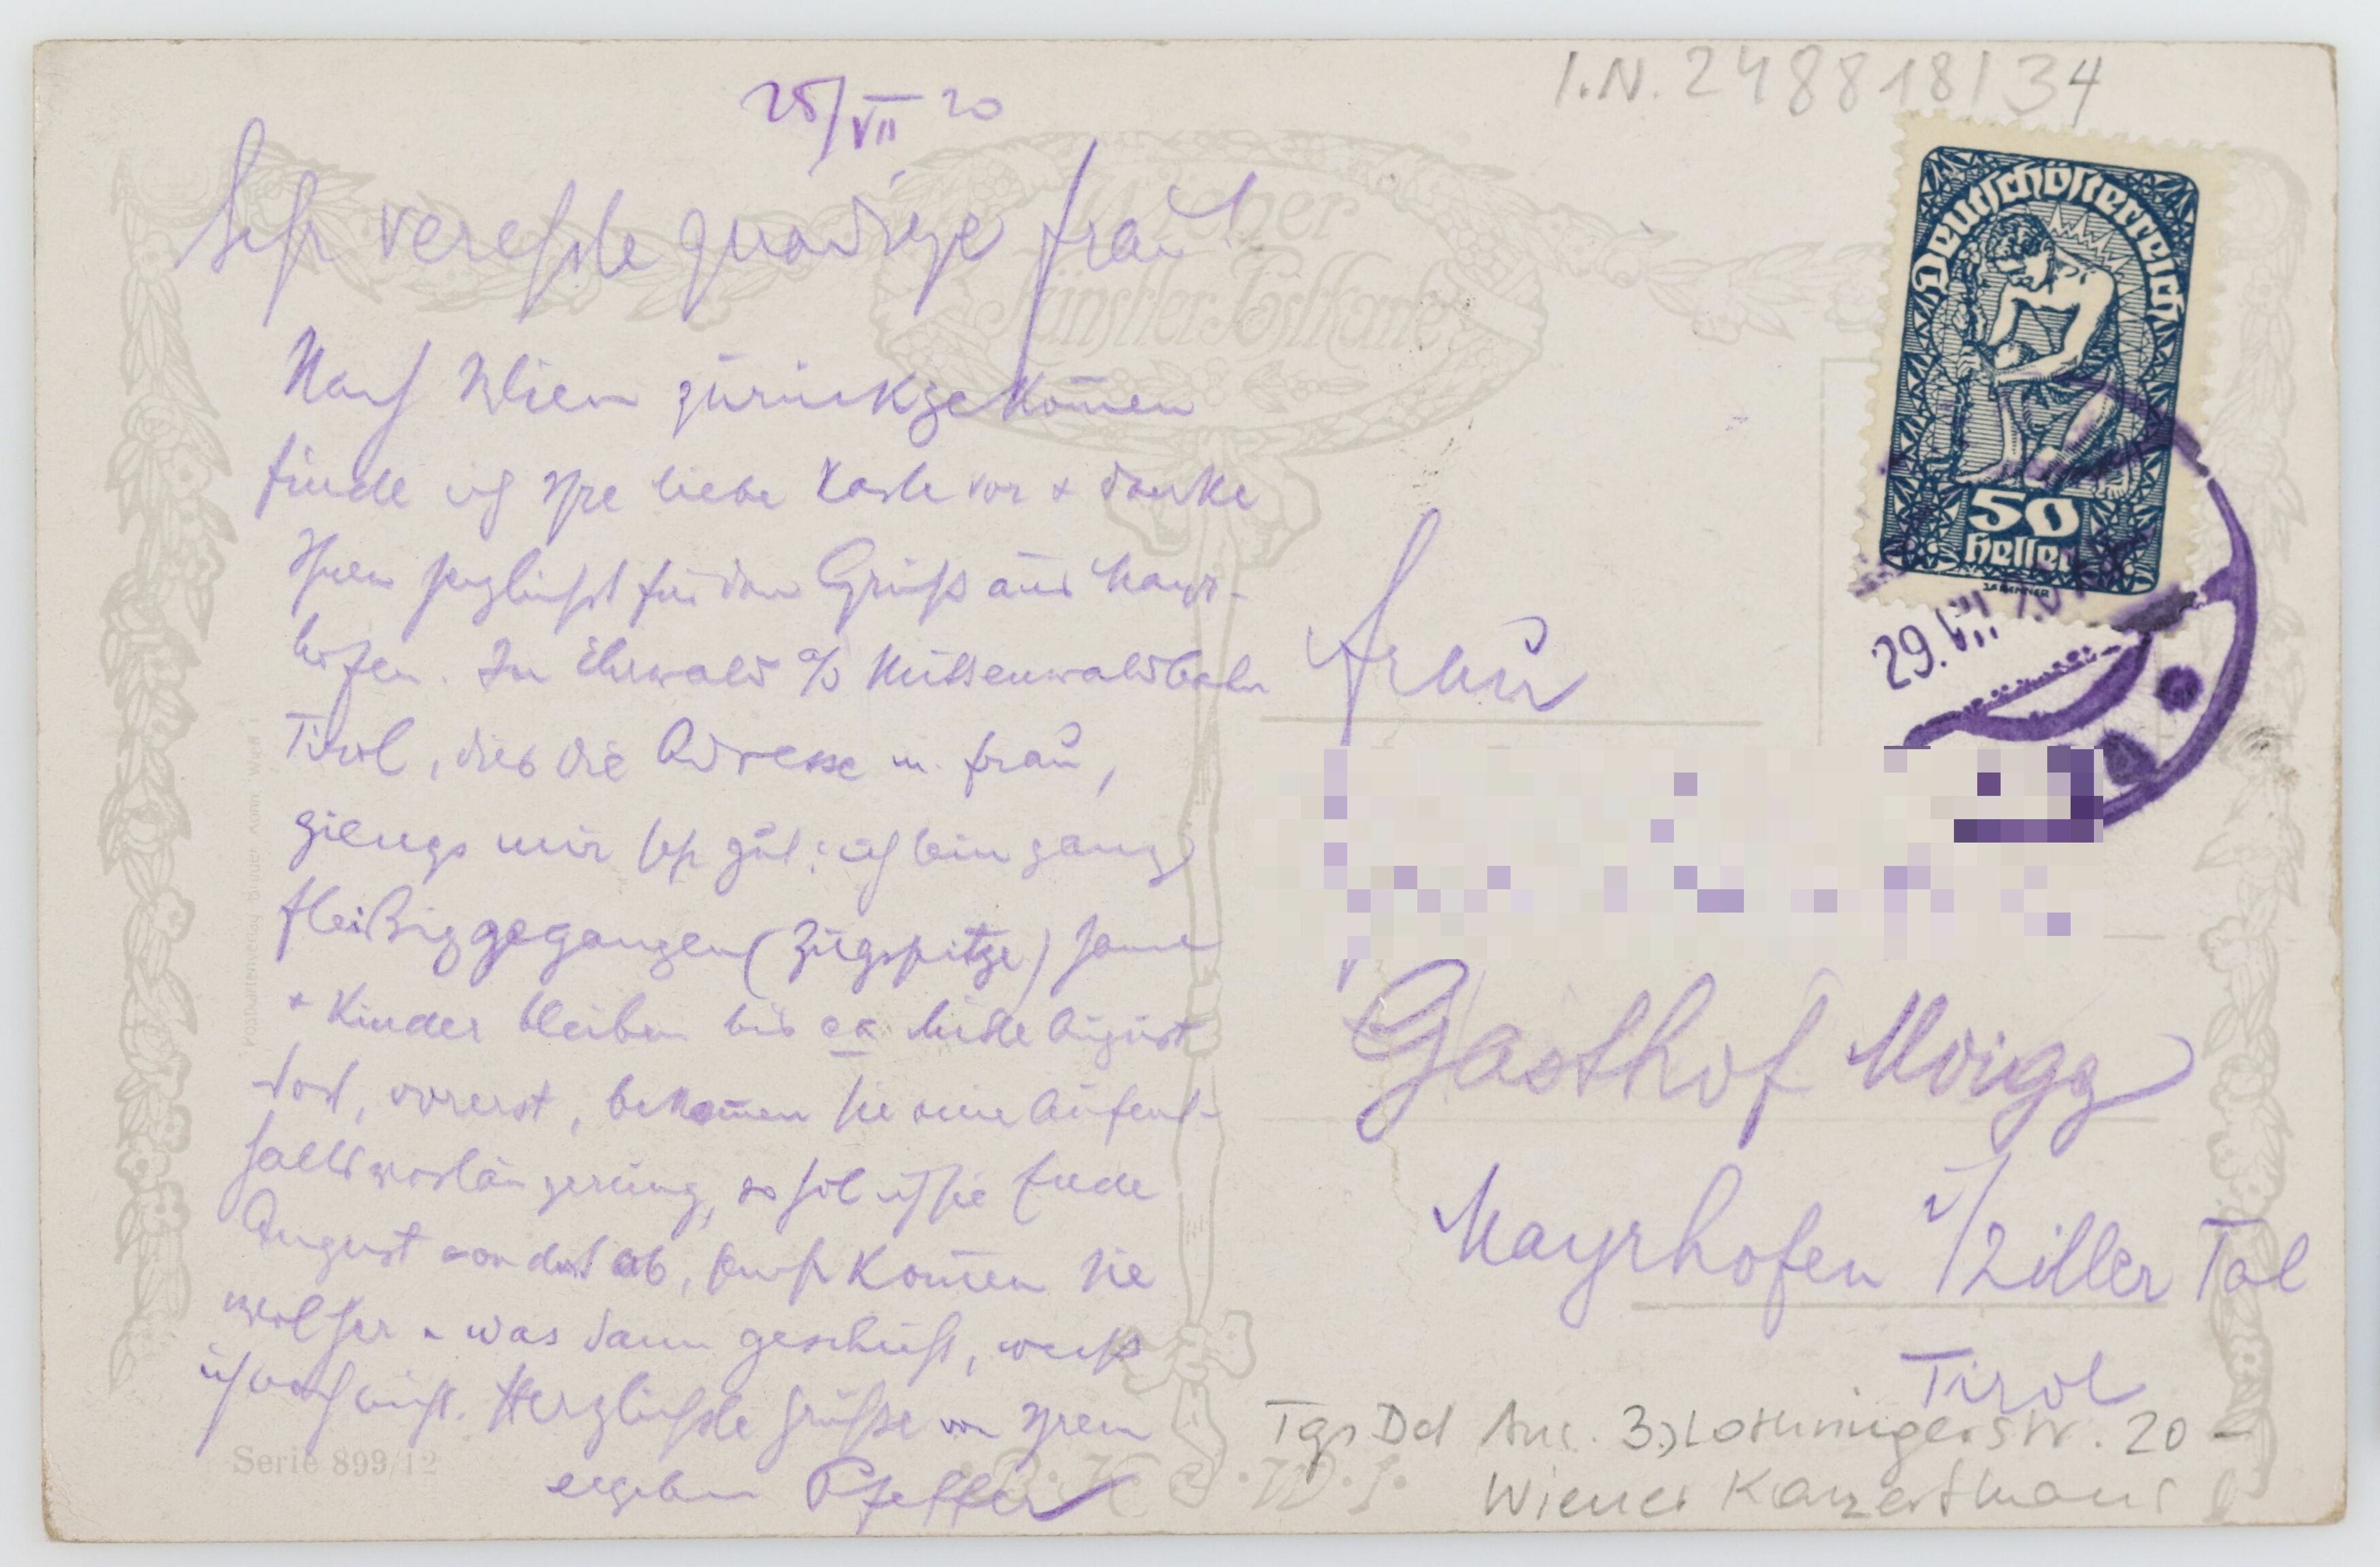 I.N. 248818/34
28/VII 20
Sehr verehrte gnädige Frau!
Nach Wien zurückgekom̄en
finde ich Ihre liebe Karte vor + danke
Ihnen herzlichst für den Gruß aus Mayr-
hofen. In Ehrwald a/d Mittenwaldbahn
Tirol, dies die Adresse m. Frau,
giengs mir sehr gut; ich bin ganz
fleißig gegangen (Zugspitze)
+ Kinder bleiben bis ca Mitte August
dort, vorerst, bekom̄en Sie eine Aufent-
haltsverlängerung, so hol ich sie Ende
August von dort ab, sonst kom̄en sie
was dann geschieht, weiß
ich noch nicht. Herzlichste Grüße von Ihrem
ergeben Pfeffer
Wiener
Künstler-Postkarte
Deutschösterreich
50
heller
29.VII
Frau
Gasthof Moigg
Mayrhofen i/Ziller Tal
Tirol
3., Lothringerstr. 20
Wiener Konzerthaus
Serie 899/12
B.K.W.I.